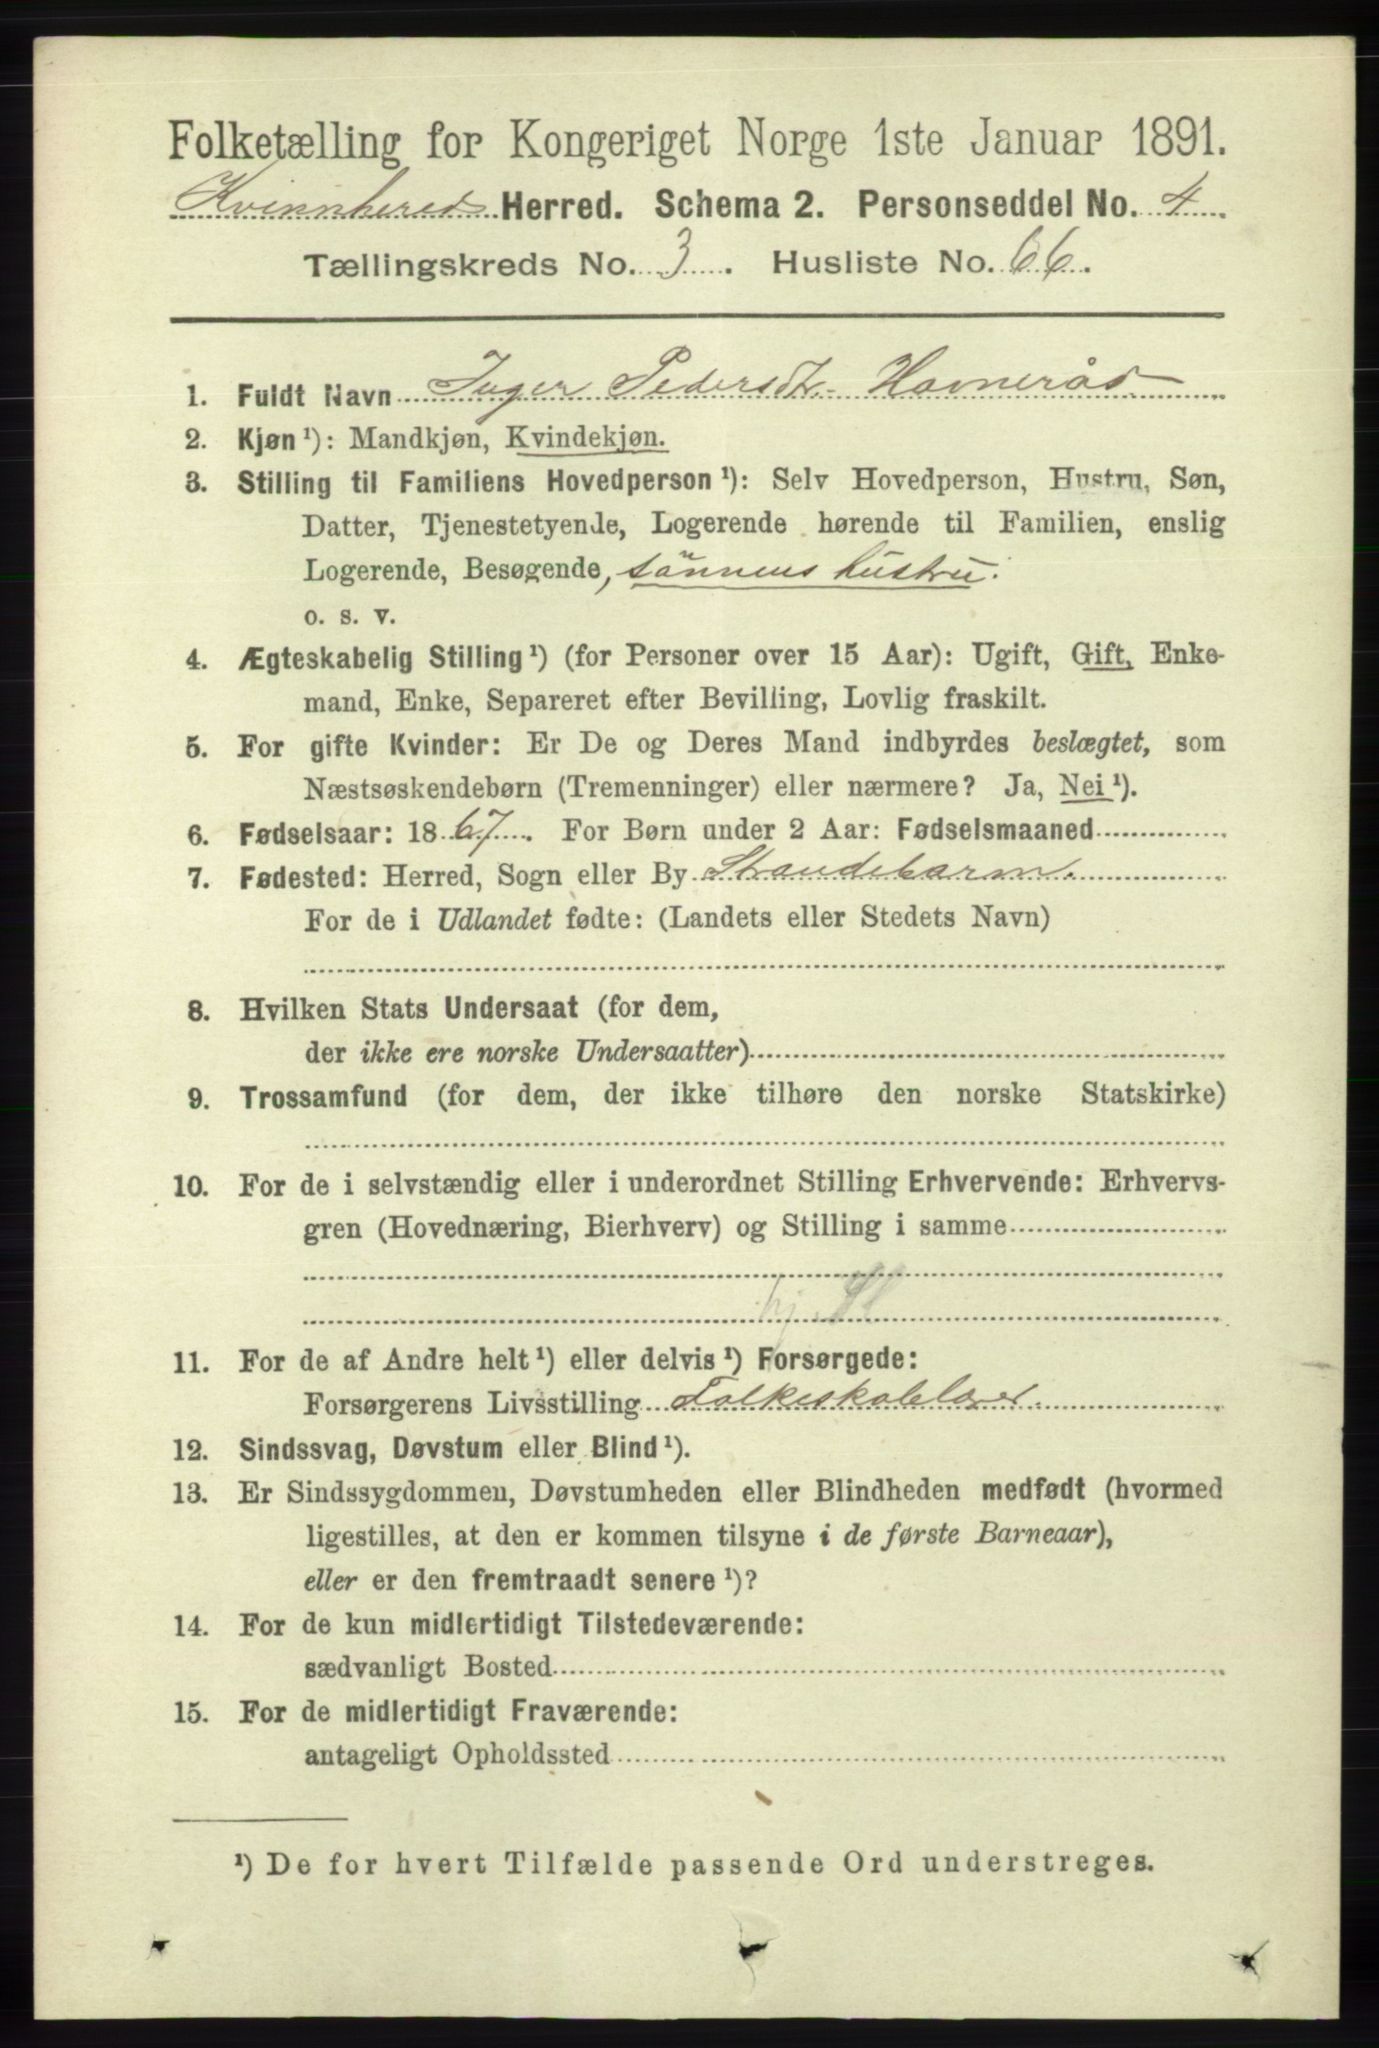 Folketælling for Kongeriget Norge 1ste Januar 1891.
Kvinnhered Herred. Schema 2. Personseddel No. 4
Tællingskreds No. 3. Husliste No. 66.
1. Fuldt Navn Inger Pedersdtr. Havnerås
2. Kjøn ¹): Mandkjøn, Kvindekjøn.
3. Stilling til Familiens Hovedperson ¹): Selv Hovedperson, Hustru, Søn,
Datter, Tjenestetyende, Logerende hørende til Familien, enslig
Logerende, Besøgende, sønnens hustru.
o. s. v.
4. Ægteskabelig Stilling ¹) (for Personer over 15 Aar): Ugift, Gift, Enke-
mand, Enke, Separeret efter Bevilling, Lovlig fraskilt.
5. For gifte Kvinder: Er De og Deres Mand indbyrdes beslægtet, som
Næstsøskendebørn (Tremenninger) eller nærmere? Ja, Nei ¹).
6. Fødselsaar: 1867. For Børn under 2 Aar: Fødselsmaaned
7. Fødested: Herred, Sogn eller By Strandebarm.
For de i Udlandet fødte: (Landets eller Stedets Navn)
8. Hvilken Stats Undersaat (for dem,
der ikke ere norske Undersaatter)
9. Trossamfund (for dem, der ikke tilhøre den norske Statskirke)
10. For de i selvstændig eller i underordnet Stilling Erhvervende: Erhvervs-
gren (Hovednæring, Bierhverv) og Stilling i samme
11. For de af Andre helt ¹) eller delvis ¹) Forsørgede:
Forsørgerens Livsstilling Folkeskolelærer.
12. Sindssvag, Døvstum eller Blind ¹).
13. Er Sindssygdommen, Døvstumheden eller Blindheden medfødt (hvormed
ligestilles, at den er kommen tilsyne i de første Barneaar),
eller er den fremtraadt senere ¹)?
14. For de kun midlertidigt Tilstedeværende:
sædvanligt Bosted
15. For de midlertidigt Fraværende:
antageligt Opholdssted
¹) De for hvert Tilfælde passende Ord understreges.